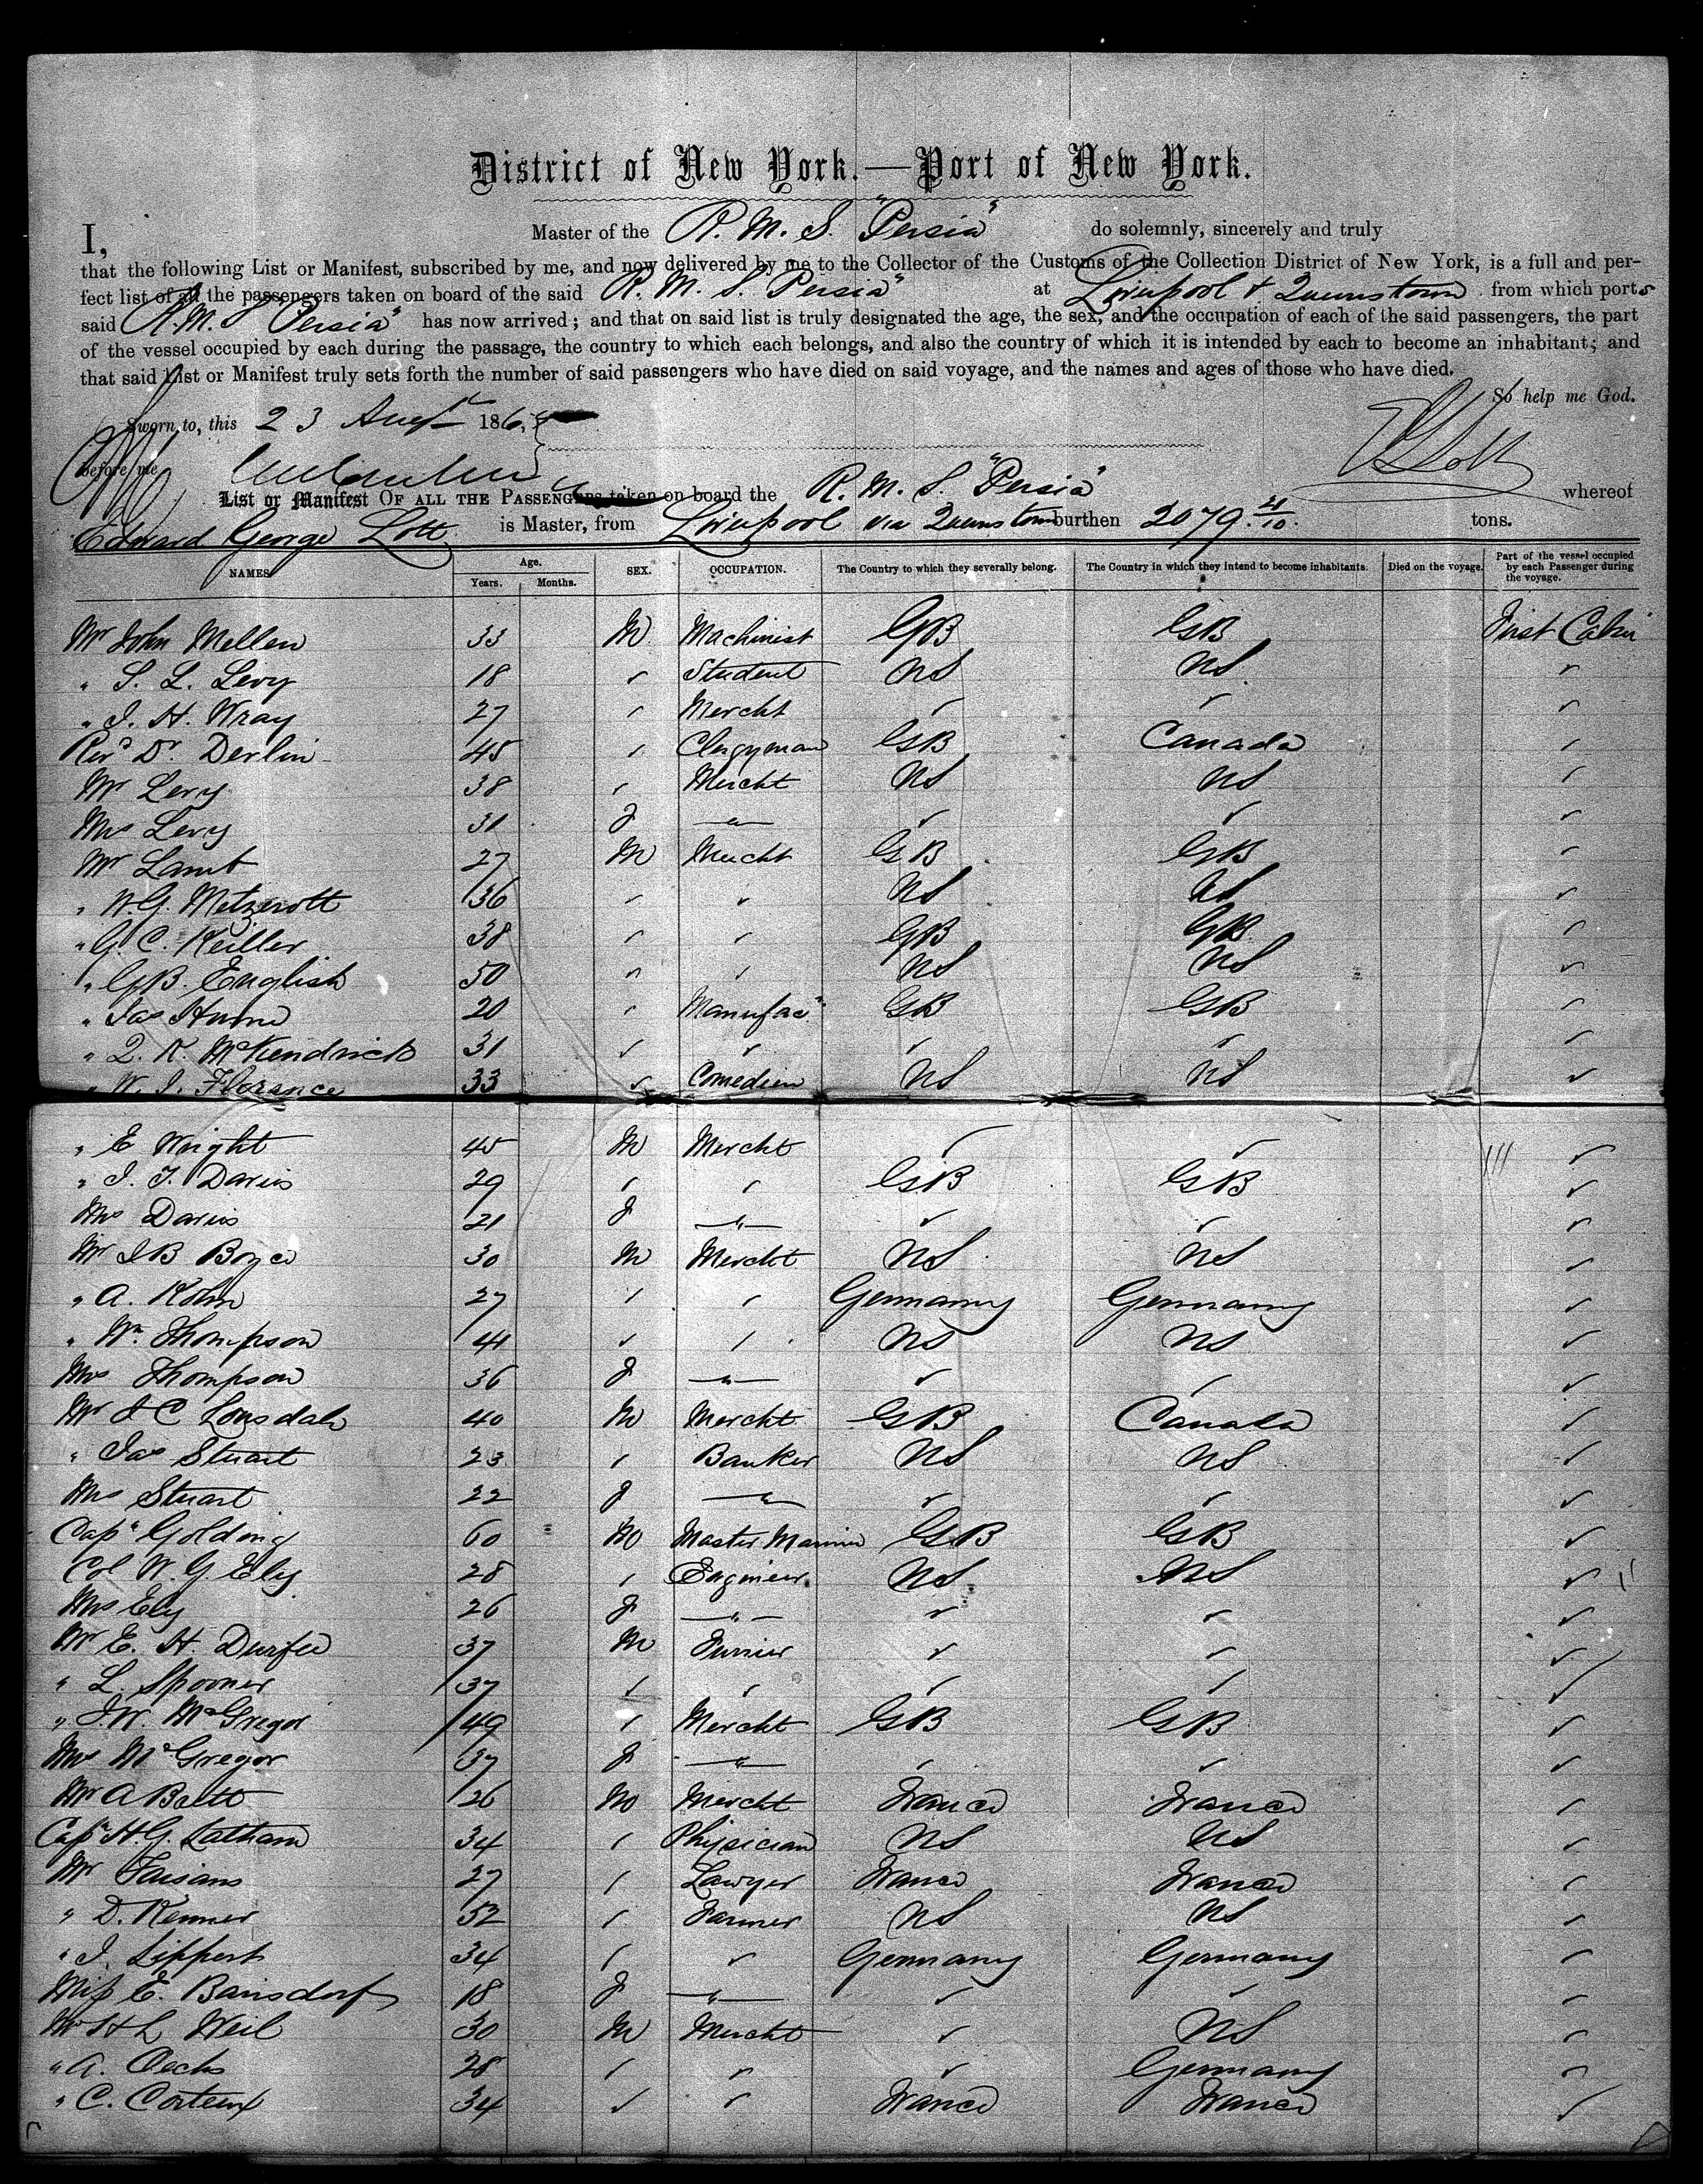 District of New York.—Port of New York.
I, Master of the R. M. S. "Persia" do solemnly, sincerely and truly
that the following List or Manifest, subscribed by me, and now delivered by me to the Collector of the Customs of the Collection District of New York, is a full and per-
fect list of all the passengers taken on board of the said R. M. S. "Persia" at Liverpool & Queenstown from which ports
said R. M. S "Persia" has now arrived; and that on said list is truly designated the age, the sex, and the occupation of each of the said passengers, the part
of the vessel occupied by each during the passage, the country to which each belongs, and also the country of which it is intended by each to become an inhabitant; and
that said List or Manifest truly sets forth the number of said passengers who have died on said voyage, and the names and ages of those who have died.
So help me God.
Sworn to, this 23 Augt 186
before me
List or Manifest OF ALL THE PASSENGERS taken on board the R. M. S. "Persia" whereof
Edward George Lott is Master, from Liverpool via Queenstown burthen 2079 tons.
NAMES Age. Years. Months. SEX. OCCUPATION. The Country to which they severally belong. The Country in which they intend to become inhabitants. Died on the voyage. Part of the vessel occupied by each Passenger during the voyage.
Mr John Mellen 33 M Machinist GB GB First Cabin
" S. L. Levy 18 " Student US US "
" J. H. Wray 27 " Mercht " " "
Revd Dr Devlin 45 " Clergyman GB Canada "
Mr Levy 38 " Mercht US US "
Mrs Levy 31 F —"— " " "
Mr Lamb 27 M Mercht GB GB "
" W. G. Metzerott 36 " " US US "
" G. C. Keiller 38 " " GB GB "
" G. B. English 50 " " US US "
" Jas Hume 20 " Manufacr GB GB "
" D. K. McKendrick 31 " " " " "
" W. J. Florance 33 " Comedien US US "
" E Wright 45 M Mercht " " "
" J. T. Davies 29 " " GB GB "
Mrs Davies 21 F —"— " " "
Mr J B Boyce 30 M Mercht US US "
" A. Kohn 27 " " Germany Germany "
" Wm Thompson 41 " " US US "
Mrs Thompson 36 F —"— " " "
Mr J C Lonsdale 40 M Mercht GB Canada "
" Jas Stuart 23 " Banker US US "
Mrs Stuart 22 F —"— " " "
Capn Golding 60 M Master Marine GB GB "
Col W. G. Ely 28 " Engineer US US "
Mrs Ely 26 F —"— " " "
Mr E. H. Durfee 37 M Furrier " " "
" L. Spooner 37 " " " " "
" J. W. McGregor 49 " Mercht GB GB "
Mrs McGregor 37 F —"— " " "
Mr A Batte 26 M Mercht France France "
Capn H. G. Latham 34 " Physician US US "
Mr Faisans 27 " Lawyer France France "
" D. Kenner 52 " Farmer US US "
" J. Lippert 34 " " Germany Germany "
Miss E. Bansdorf 18 F —"— " " "
Mr H L Weil 30 M Mercht " US "
" A. Oechs 28 " " " Germany "
" C. Corteux 34 " " France France "